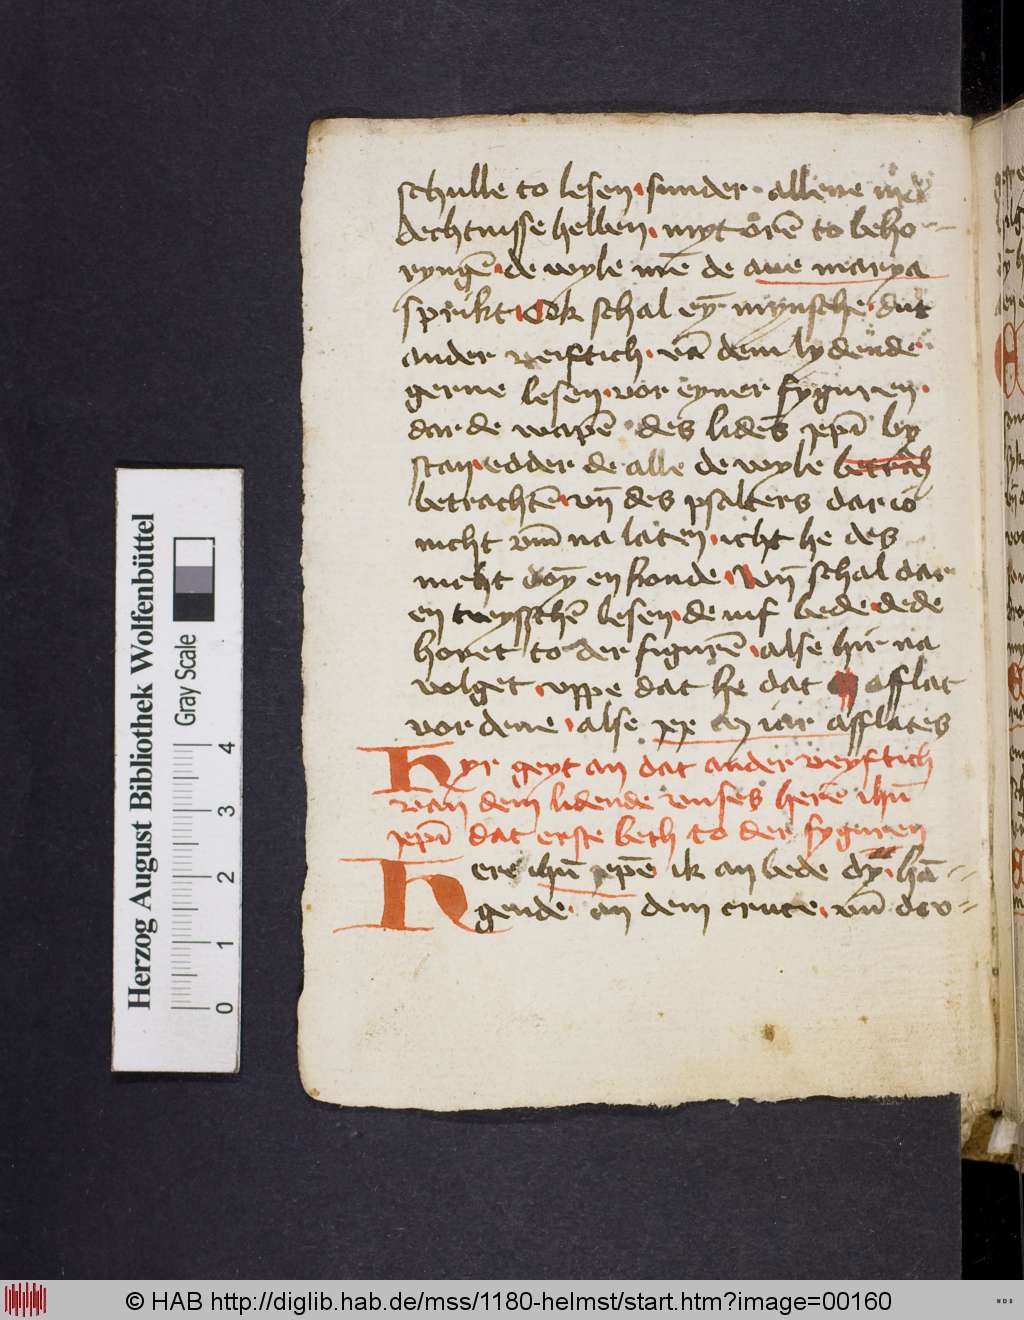 schulle to lesen · sunder · allene
dechtnisse hebben · myt oren to beho
ryngē · de wyle mē de aue marya
sprikt · Ok schal eȳ mynsche · dut
ander veiftich · vā dem lydende ·
gerne lesen · vor eyner fyguren ·
dar de wapē des lidēs xp̄i by
stan · edder de alle de wyle betrach
betrachtē · vn̄ des psalters dar
nicht vm̄ na laten · icht he des
nicht doȳ en konde · vn̄ schal dar
en twysschē lesen · de vif bede · de de
horet to der figurē · alse hir na
volget · vppe dat he dat afflat
vordene · alse xx m iar afflates
Hyr geyt an dat ander veyftich
van dem lidende vnses herē ihū
xp̄i dat erste beth to der fyguren
Here ihū xp̄e ik an bede dȳ · hā
gende · an dem cruce · vn̄ dov
Herzog August Bibliothek Wolfenbüttel
Gray Scale
0 1 2 3 4
© HAB http://diglib.hab.de/mss/1180-helmst/start.htm?image=00160